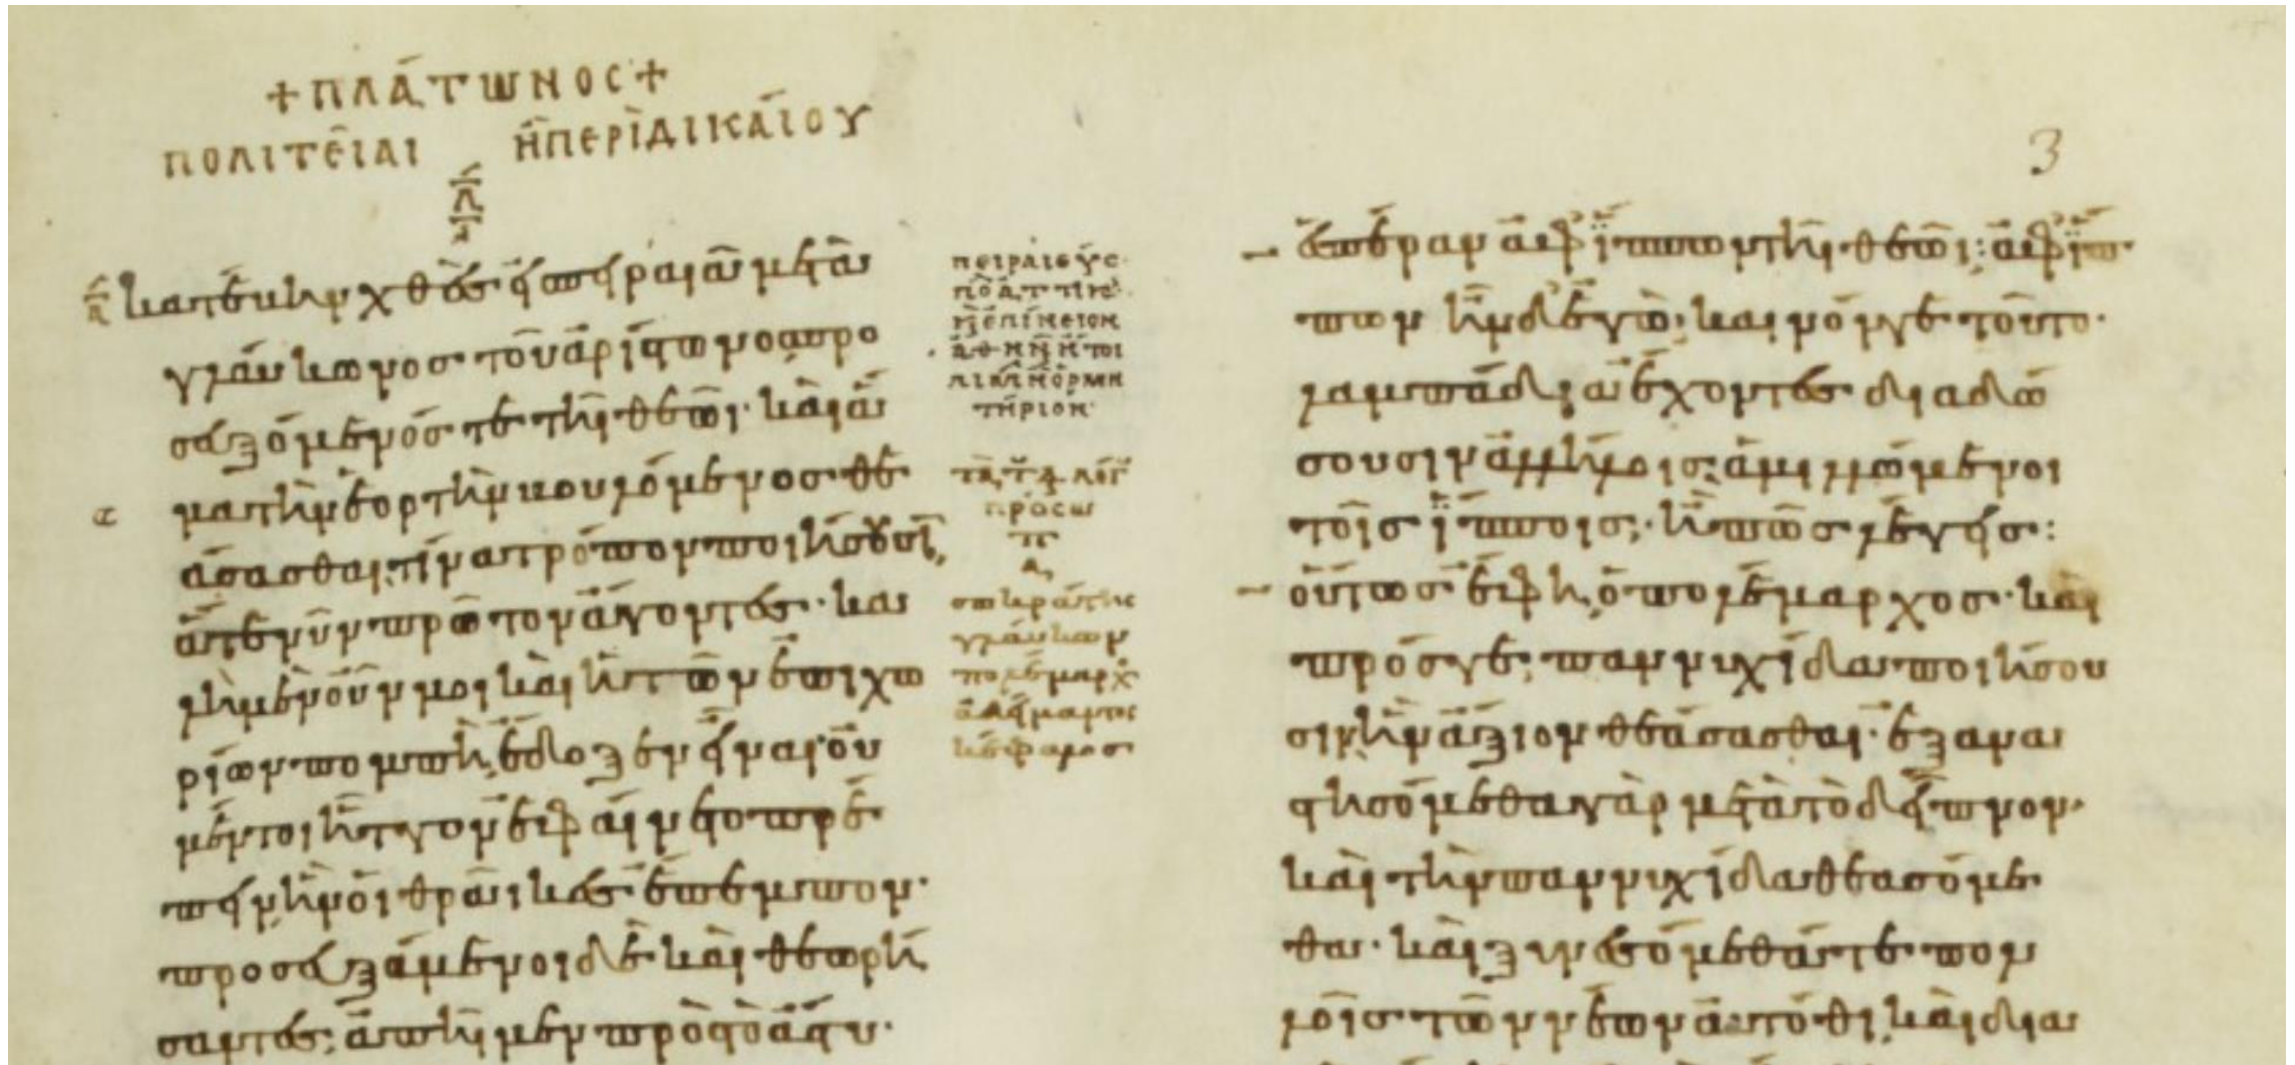 + ΠΛΆΤΩΝΟΣ +
ΠΟΛΙΤΕῖΑΙ ἢ ΠΕΡὶ ΔΙΚΑίΟΥ
Α
κατέβην χθὲς εἰς πειραιᾶ μετὰ
γλαύκωνος τοῦ ἀρίστωνος προ
σευξόμενός τε τῆι θεῶι· καὶ ἅ
μα τὴν ἑορτὴν βουλόμενος θε
άσασθαι, τίνα τρόπον ποιήσουσιν,
ἅτε νῦν πρῶτον ἄγοντες· κα
λὴ μὲν οὖν μοι καὶ ἡ τῶν ἐπιχω
ρίων πομπὴ ἔδοξεν εἶναι· οὐ
μέντοι ἧττον ἐφαίνετο πρέ
πειν ἣν οἱ θρᾶικες ἔπεμπον·
προσευξάμενοι δὲ καὶ θεωρή
σαντες, ἀπῆιμεν πρὸς τὸ ἄστυ·
πειραιεὺς
ὁ ἀττικὸς
ἢ ἐπίνειον
ἀθηνῆσι
ὁρμη
τήριον
τὰ τοῦ διαλόγου
πρόσω
π
α
σωκράτης
γλαύκων
πολέμαρχος
ἀδείμαντος
κέφαλος
ἑσπέραν ἀφ' ἵππων τῆι θεῶι: ἀφ' ἵπ
πων ἦν δ' ἐγώ; καινόν γε τοῦτο·
λαμπάδια ἔχοντες διαδώ
σουσιν ἀλλήλοις ἁμιλλώμενοι
τοῖς ἵπποις· ἢ πῶς λέγεις:
οὕτως ἔφη ὁ πολέμαρχος· καὶ
πρός γε παννυχίδα ποιήσου
σιν ἣν ἄξιον θεάσασθαι· ἐξανα
στησόμεθα γὰρ μετὰ τὸ δεῖπνον·
καὶ τὴν παννυχίδα θεασόμε
θα· καὶ ξυνεσόμεθά τε πολ
λοῖς τῶν νέων αὐτόθι καὶ δια
3